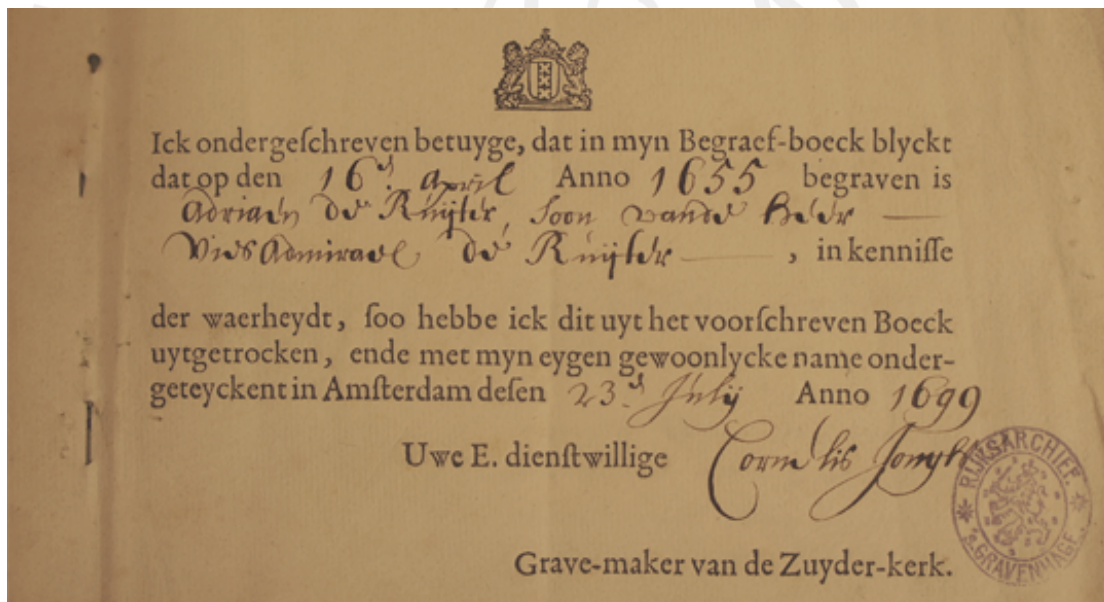 Ick ondergeſchreven betuyge, dat in myn Begraef-boeck blyckt
dat op den 16.d April Anno 1655 begraven is
Adriaen de Ruijter, soon vande Heer —
Vies Admirael de Ruijter — , in kenniſſe
der waerheydt, ſoo hebbe ick dit uyt het voorſchreven Boeck
uytgetrocken, ende met myn eygen gewoonlycke name onder-
geteyckent in Amſterdam deſen 23.d Julij Anno 1699
Uwe E. dienſtwillige Cornelis
RIJKSARCHIEF
'S GRAVENHAGE
Grave-maker van de Zuyder-kerk.